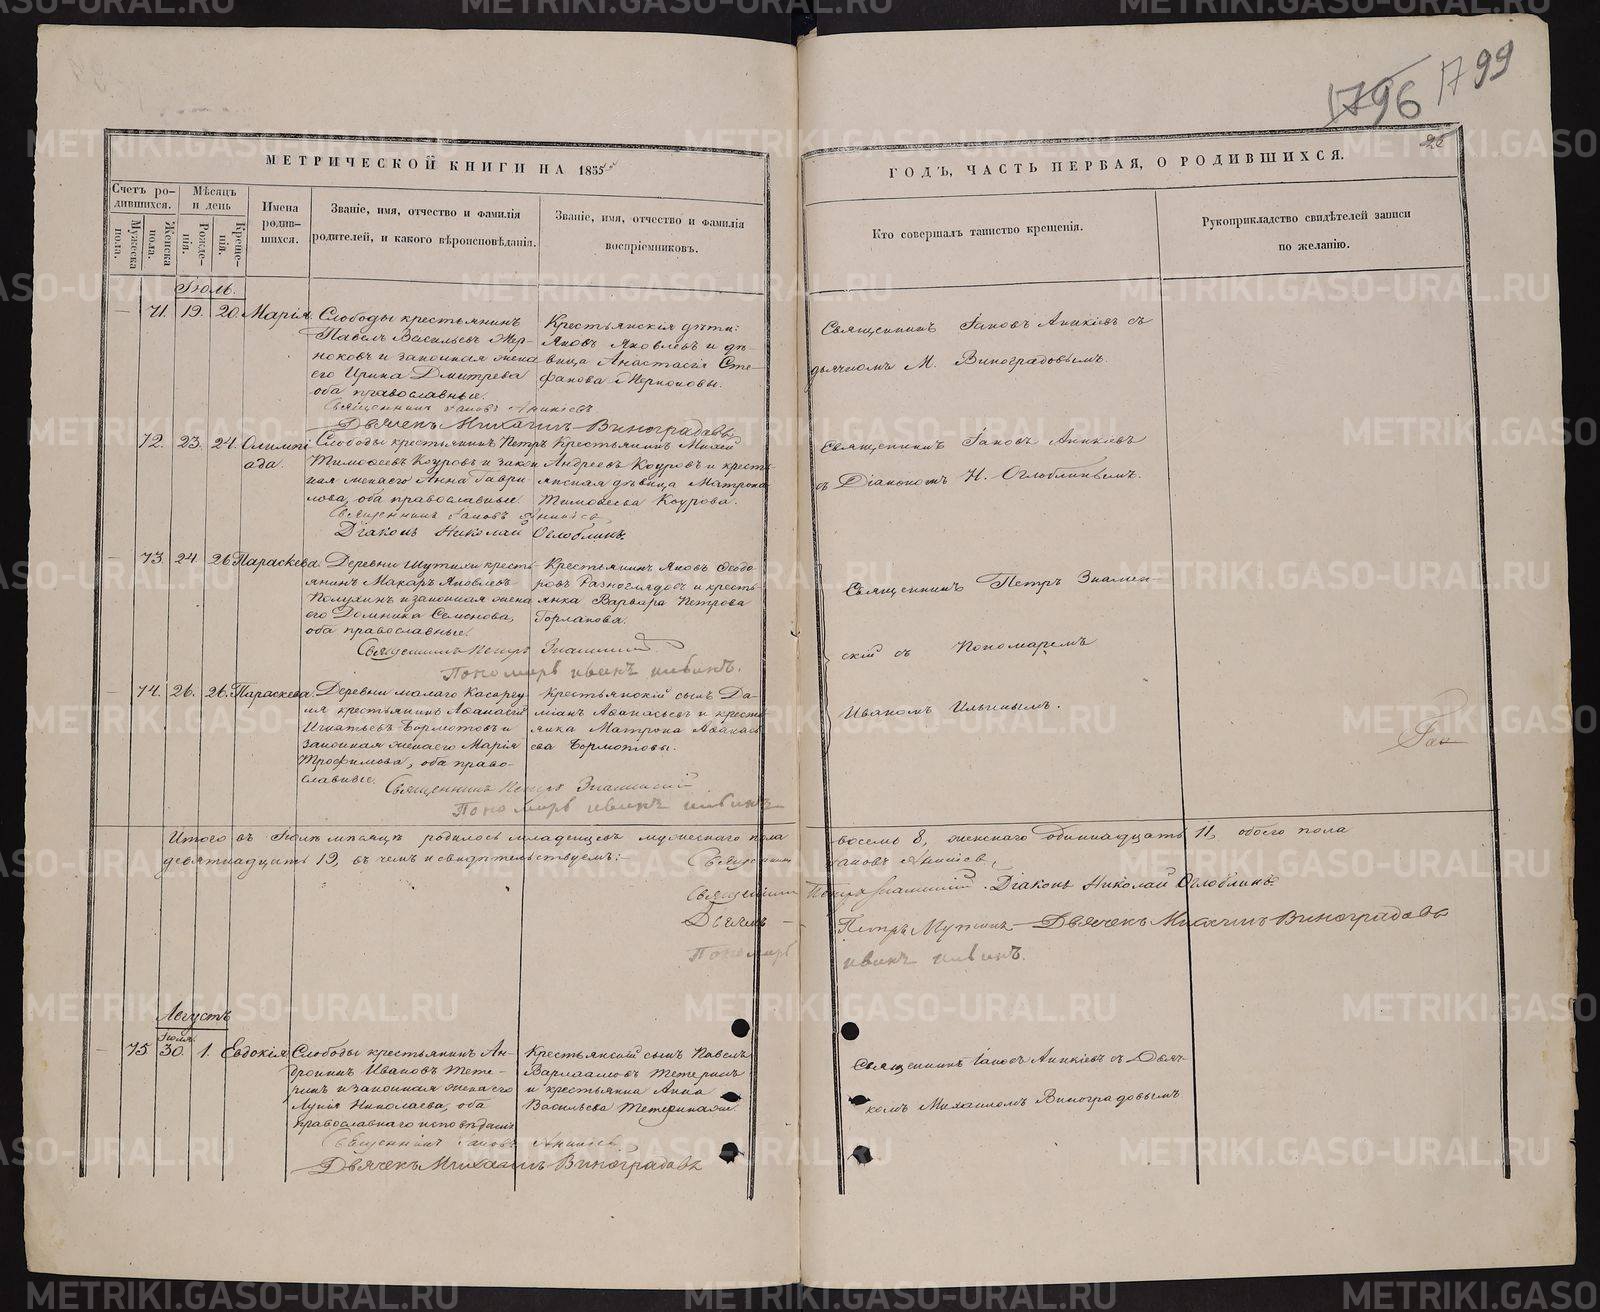 1796 1799
92
МЕТРИЧЕСКОЙ КНИГИ НА 1855
ГОДЪ, ЧАСТЬ ПЕРВАЯ, О РОДИВШИХСЯ.
Счетъ родившихся.
Мужеска пола.
Женска пола.
Мѣсяцъ и день
Рожденія.
Крещенія.
Имена родившихся.
Званіе, имя, отчество и фамилія
родителей, и какого вѣроисповѣданія.
Званіе, имя, отчество и фамилія
воспріемниковъ.
Кто совершалъ таинство крещенія.
Рукоприкладство свидѣтелей записи
по желанію.
Іюль.
71. 19. 20. Марія.
Слободы крестьянинъ
Павелъ Васильевъ Жер-
ноковъ и законная жена
его Ирина Дмитрева
оба православные.
Крестьянскія дѣти:
Яковъ Яковлевъ и дѣ-
вица Анастасія Сте-
фанова Жерноковы.
Священникъ Іаковъ Аникіевъ съ
дьячкомъ М. Виноградовымъ.
Священникъ Іаковъ Аникіевъ
Дьячекъ Михаилъ Виноградовъ
72. 23. 24. Олимпі
ада.
Слободы крестьянинъ Петръ
Тимофеевъ Коуровъ и закон
ная жена его Анна Гаври
лова, оба православные.
Крестьянинъ Михей
Андреевъ Коуровъ и кресть-
янская дѣвица Матрона
Тимофеева Коурова.
Священникъ Іаковъ Аникіевъ
съ Діакономъ Н. Оглоблинымъ.
Священникъ Іаковъ Аникіевъ
Діаконъ Николай Оглоблинъ.
73. 24. 26. Параскева.
Деревни Шутихи кресть-
янинъ Макаръ Яковлевъ
Полухинъ и законная жена
его Домника Семенова,
оба православные.
Крестьянинъ Яковъ Ѳедо-
ровъ Разноглядовъ и кресть-
янка Варвара Петрова
Горлакова.
Священникъ Петръ Знамен-
скій съ Пономаремъ
Иваномъ Ильинымъ.
Священникъ Петръ Знаменскій
Пономарь Иванъ Ильинъ.
74. 26. 26. Параскева.
крестьянинъ Афанасій
Игнатьевъ Бормотовъ и
законная жена его Марія
Трофимова, оба право-
славные.
Крестьянскій сынъ Да-
міанъ Афанасьевъ и кресть-
янка Матрона Афанась
ева Бормотовы.
Священникъ Петръ Знаменскій
Пономарь Иванъ Ильинъ
Итого въ Іюлѣ мѣсяцѣ родилось младенцевъ мужескаго пола восемь 8, женскаго одиннадцать 11, обоего пола
девятнадцать 19, въ чемъ и свидѣтельствуемъ:- Священникъ Іаковъ Аникіевъ,
Священникъ Петръ Знаменскій. Діаконъ Николай Оглоблинъ.
Дьячекъ - Петръ Мутинъ - Дьячекъ Михаилъ Виноградовъ
Пономарь Иванъ Ильинъ.
Августъ
Іюля
75 30. 1. Евдокія
Слободы крестьянинъ Ан-
дроникъ Ивановъ Тете-
ринъ и законная жена его
Лукія Николаева, оба
православнаго исповѣданія.
Крестьянскій сынъ Павелъ
Варлаамовъ Тетеринъ
и крестьянка Анна
Васильева Тетерина.
Священникъ Іаковъ Аникіевъ съ Дьяч-
комъ Михаиломъ Виноградовымъ
Священникъ Іаковъ Аникіевъ
Дьячекъ Михаилъ Виноградовъ
METRIKI.GASO-URAL.RU